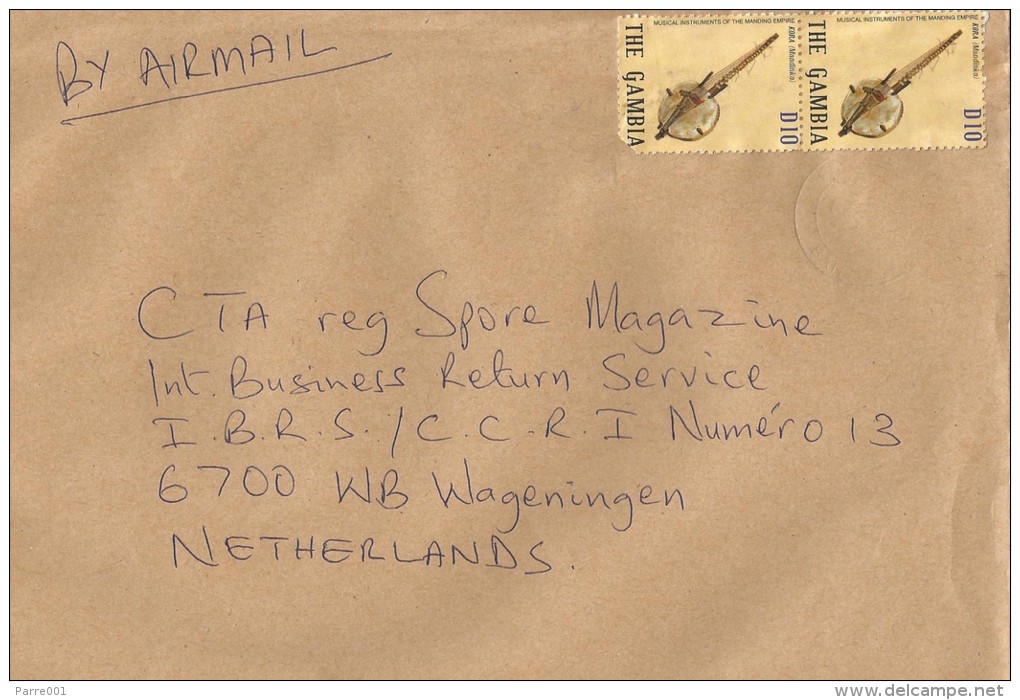 BY AIRMAIL
MUSICAL INSTRUMENTS OF THE MANDING EMPIRE
THE GAMBIA
KORA (Mandinka)
D10
MUSICAL INSTRUMENTS OF THE MANDING EMPIRE
THE GAMBIA
KORA (Mandinka)
D10
CTA reg Spore Magazine
Int. Business Return Service
I.B.R.S./C.C.R.I Numéro 13
6700 WB Wageningen
NETHERLANDS.
Parre001
delcampe.net